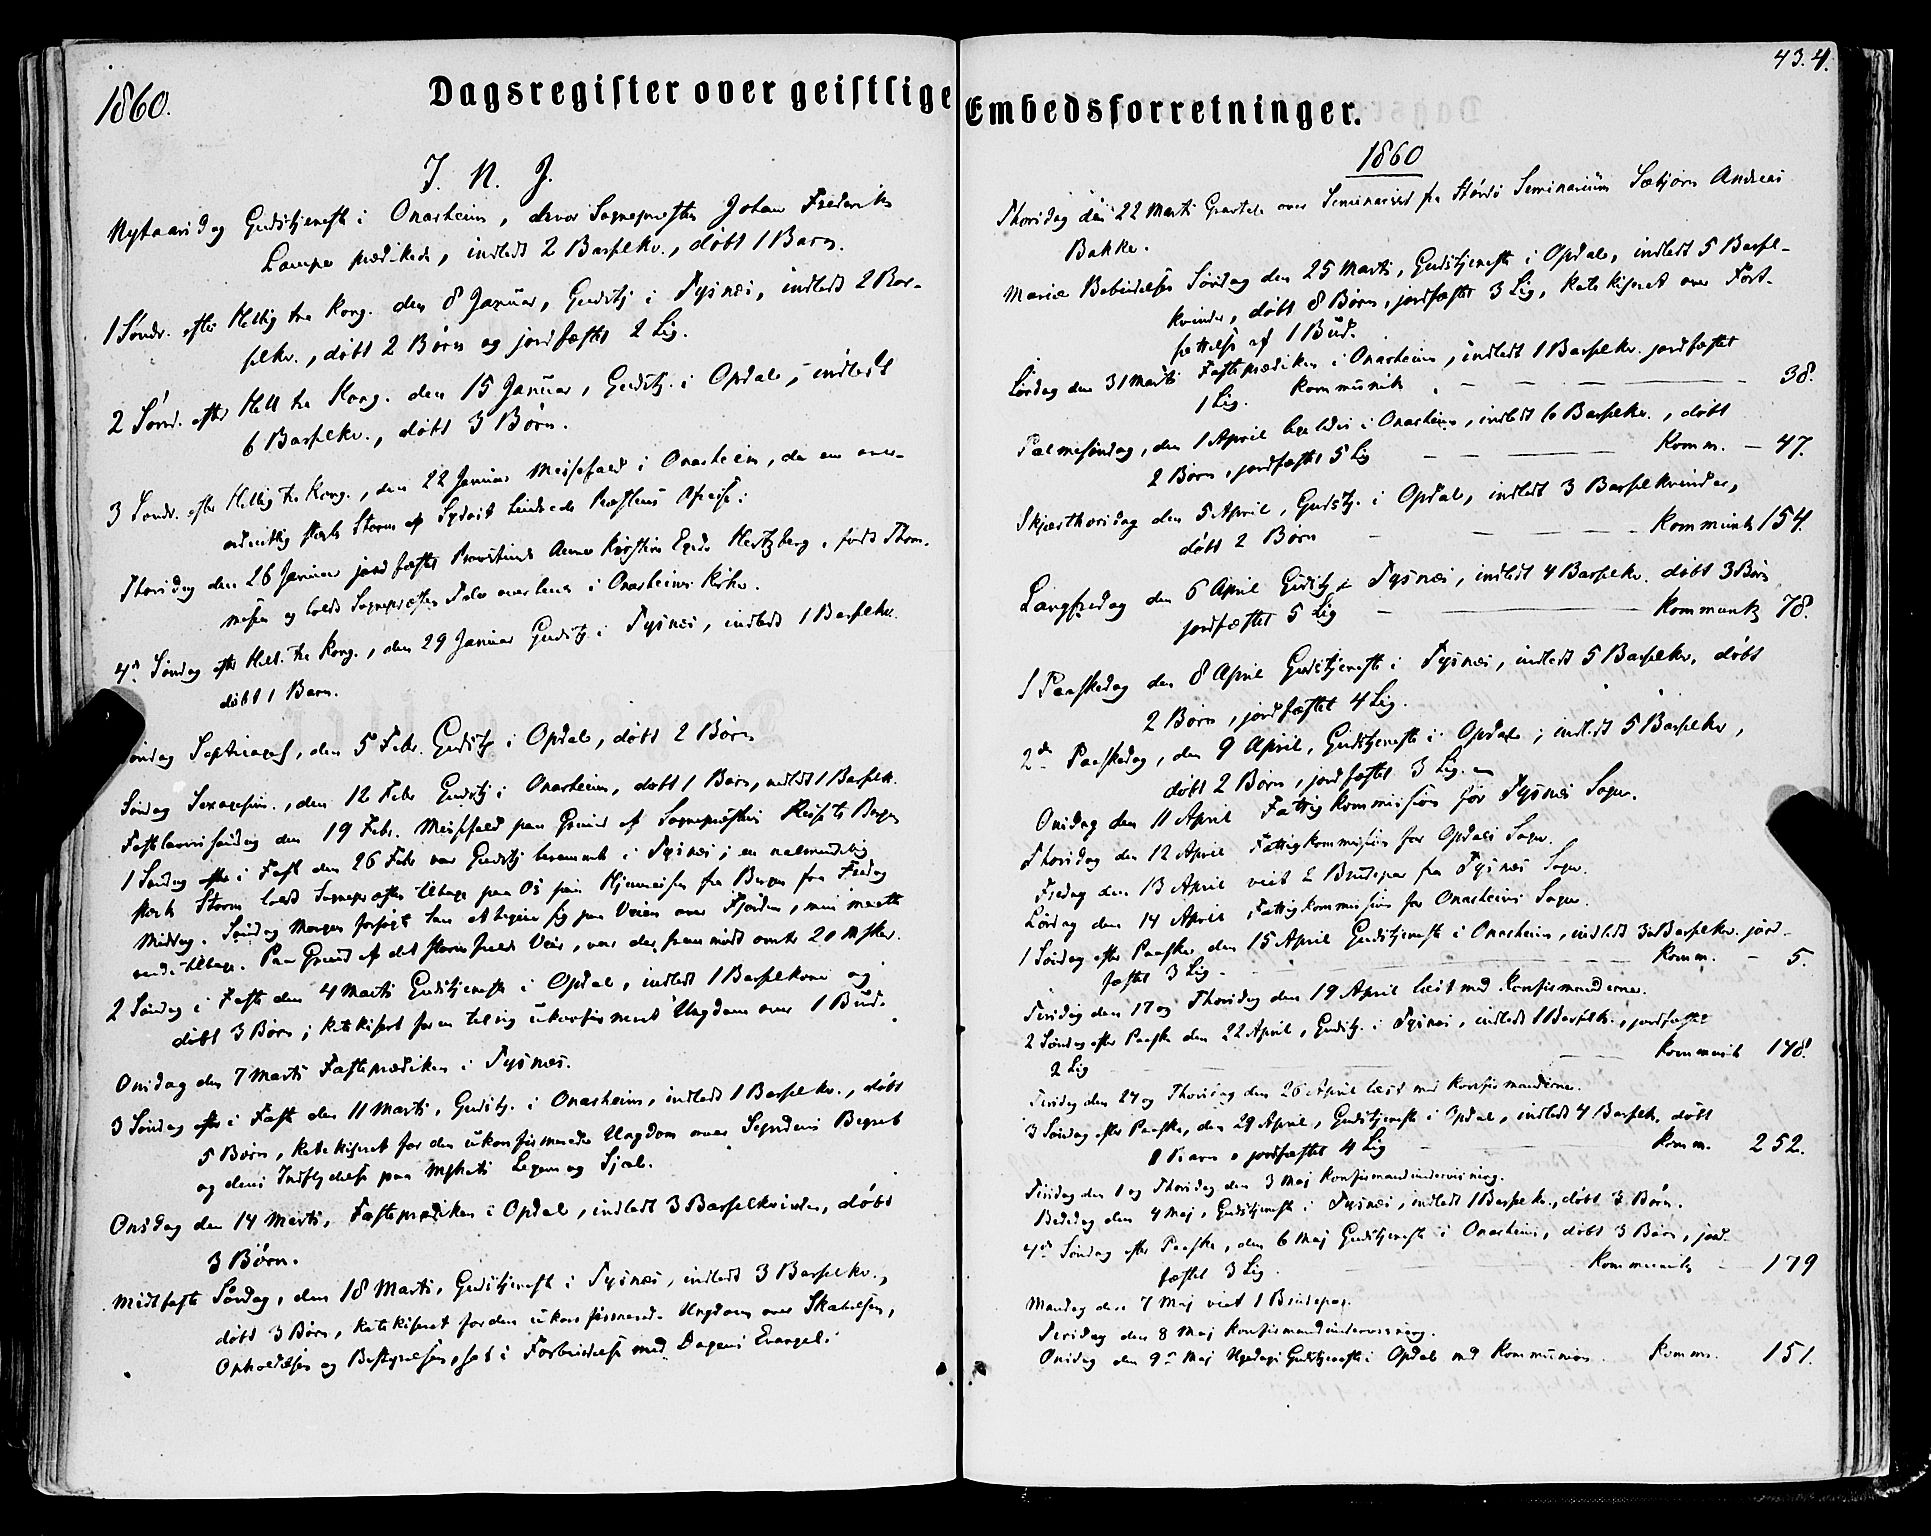 1860.
Dagsregister over geistlige Embedsforretninger.
43. 4.
J. N. J.
Nytaarsdag Gudstjeneste i Onarheim, hvor Sognepresten Johan Frederik
Lampe prædikede, indledt 2 Barselkv., døbt 1 Barn.
1 Søndr. efter Hellig tre Kong. den 8 Januar, Gudstj i Tysnæs, indledt 2 Bar-
selkv., døbt 2 Børn og jordfæstet 2 Lig.
2 Sønd. efter Hell tre Kong. den 15 Januar, Gudstj. i Opdal, indledt
6 Barselkv., døbt 3 Børn.
3 Søndr. efter Hellig tre Kong., den 22 Januar Messefald i Onarheim, da en over-
ordentlig stærk Storm af Sydost hindrede Præstens Afreise.
Thorsdag den 26 Januar jordfæstet Provstinde Anna Kirstine Hertzberg, født Thom-
mesen og holdt Sognepræsten Tale over hende i Onarheims Kirke.
4de Søndag efter Hell. tre Kong., den 29 Januar Gudstj i Tysnæs, indledt 1 Barselkv.
døbt 1 Barn.
Søndag Septuages, den 5 Febr. Gudstj i Opdal, døbt 2 Børn
Søndag Sexagesim., den 12 Febr Gudstj i Onarheim, døbt 1 Barn, indledt 1 Barselk.
Fastelavnssøndag den 19 Febr. Messefald paa Grund af Sognepræstens Reise til Bergen
1 Søndag efter i Fast den 26 Febr var Gudstj berammet i Tysnæs; en ualmindelig
stærk Storm holdt Sognepræsten tilbage paa Os paa Hjemreisen fra Bergen fra Fredag
Middag. Søndag Morgen forsøgte han at begive sig paa Veien over Fjorden, men maatte
vende tilbage. Paa Grund af det stormfulde Veir, var der fremmødt omtr 20 Msker.
2 Søndag i Faste den 4 Marts Gudstjeneste i Opdal, indledt 1 Barselkone og
døbt 3 Børn; katekisert for en talrig ukonfirmeret Ungdom over 1 Bud.
Onsdag den 7 Marts Fasteprædiken i Tysnæs.
3 Søndag efter i Fast den 11 Marts, Gudstj. i Onarheim, indledt 1 Barselkv., døbt
5 Børn, katekiseret for den ukonfirmerede Ungdom over Syndens Begreb
og dens Indflydelse paa Mskets Legem og Sjæl.
Onsdag den 14 Marts, Fasteprædiken i Opdal, indledt 3 Barselkvinder, døbt
3 Børn.
Midtfaste Søndag, den 18 Marts, Gudstjeneste i Tysnæs, indledt 3 Barselkv.,
døbt 3 Børn, katekiseret for den ukonfirmerede Ungdom over Skabelsen,
Opholdelsen og Bestyrelsen, sat i Forbindelse med Dagens Evangel.
1860
Thorsdag den 22 Marts over Seminarist fra Stords Seminarium Sæbjørn Andreas
Bakke.
Mariæ Bebudelses Søndag den 25 Marts, Gudstjeneste i Opdal, indledt 5 Barsel-
kvinder, døbt 8 Børn, jordfæstet 3 Lig, katekiseret over Fort-
sættelse af 1 Bud.
Lørdag den 31 Marts Fasteprædiken i Onarheim, indledt 1 Barselkv. jordfæstet
1 Lig. Kommunik - - - - - 38.
Palmesøndag, den 1 April ligeledes i Onarheim, indledt 6 Barselkv., døbt
2 Børn, jordfæstet 5 Lig - - - Komm. - 47.
Skjærthorsdag den 5 April, Gudstj. i Opdal, indledt 3 Barselkvinder,
døbt 2 Børn - - - Kommunk 154.
Langfredag den 6 April Gudstj i Tysnæs, indledt 4 Barselkv. døbt 3 Børn
jordfæstet 5 Lig - - Kommunk 78.
1 Paaskedag den 8 April Gudstjeneste i Tysnæs, indledt 5 Barselkv. døbt
2 Børn, jordfæstet 4 Lig.
2den Paaskedag, den 9 April, Gudstjeneste i Opdal, indledt 5 Barselkv,
døbt 2 Børn, jordfæstet 3 Lig.
Onsdag den 11 April Fattigkommission for Tysnæs Sogn.
Thorsdag den 12 April Fattigkommission for Opdals Sogn.
Fredag den 13 April viet 2 Brudepar fra Tysnæs Sogn.
Lørdag den 14 April Fattigkommission for Onarheims Sogn.
1 Søndag efter Paaske den 15 April Gudstjeneste i Onarheim, indledt 3 Barselkv. jord-
fæstet 3 Lig. - - - Komm. - 5.
Tirsdag den 17 og Thorsdag den 19 April læst med Konfirmanderne.
2 Søndag efter Paaske den 22 April, Gudstj. i Tysnæs, indledt 1 Barselk., jordfæstet
2 Lig - - - Kommunik 178.
Tirsdag den 24 og Thorsdag den 26 April læst med Konfirmanderne.
3 Søndag efter Paaske, den 29 April, Gudstjeneste i Opdal, indledt 4 Barselk. døbt
1 Barn, jordfæstet 4 Lig - - Komm. 252.
Tirsdag den 1 og Thorsdag den 3 Maj Konfirmandundervisning.
Bededag den 4 Maj, Gudstjeneste i Tysnæs, indledt 1 Barselkv., døbt 3 Børn.
4de Søndag efter Paaske, den 6 Maj Gudstjeneste i Onarheim, døbt 3 Børn, jord-
fæstet 3 Lig. - - - Kommunik - 179
Mandag den 7 Maj viet 1 Brudepar.
Tirsdag den 8 Maj Konfirmandundervisning.
Onsdag den 9de Maj Ugedags Gudstjeneste i Opdal med Kommunion. Komm. 151.